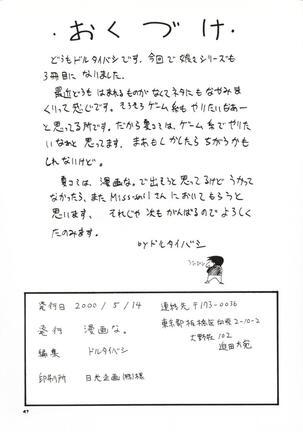 ・おくづけ・
どうもドルタイバシです。今回で娘々シリーズも
3冊目になりました。
最近どうも はまれるものがなくてネタにもなやみま
くりって感じです。そろそろゲーム系もやりたいなあー
と思ってる所です。だから夏コミは、ゲーム系でやりた
いなぁと 思ってます。まあもしかしたら ちがうかも
しれないけど。
夏コミは、漫画な。で出そうと思ってるけど うかって
なかったら、また Missailさんにおいてもらうと
思います。 それじゃ次もがんばるのでよろしく
たのみます。
by ドルタイバシ
発行日 2000/5/14
発行 漫画な。
編集 ドルタイバシ
印刷所 日光企画(株)様
連絡先 〒173-0036
東京都板橋区向原2-10-2
大野荘102
迫田方宛
47